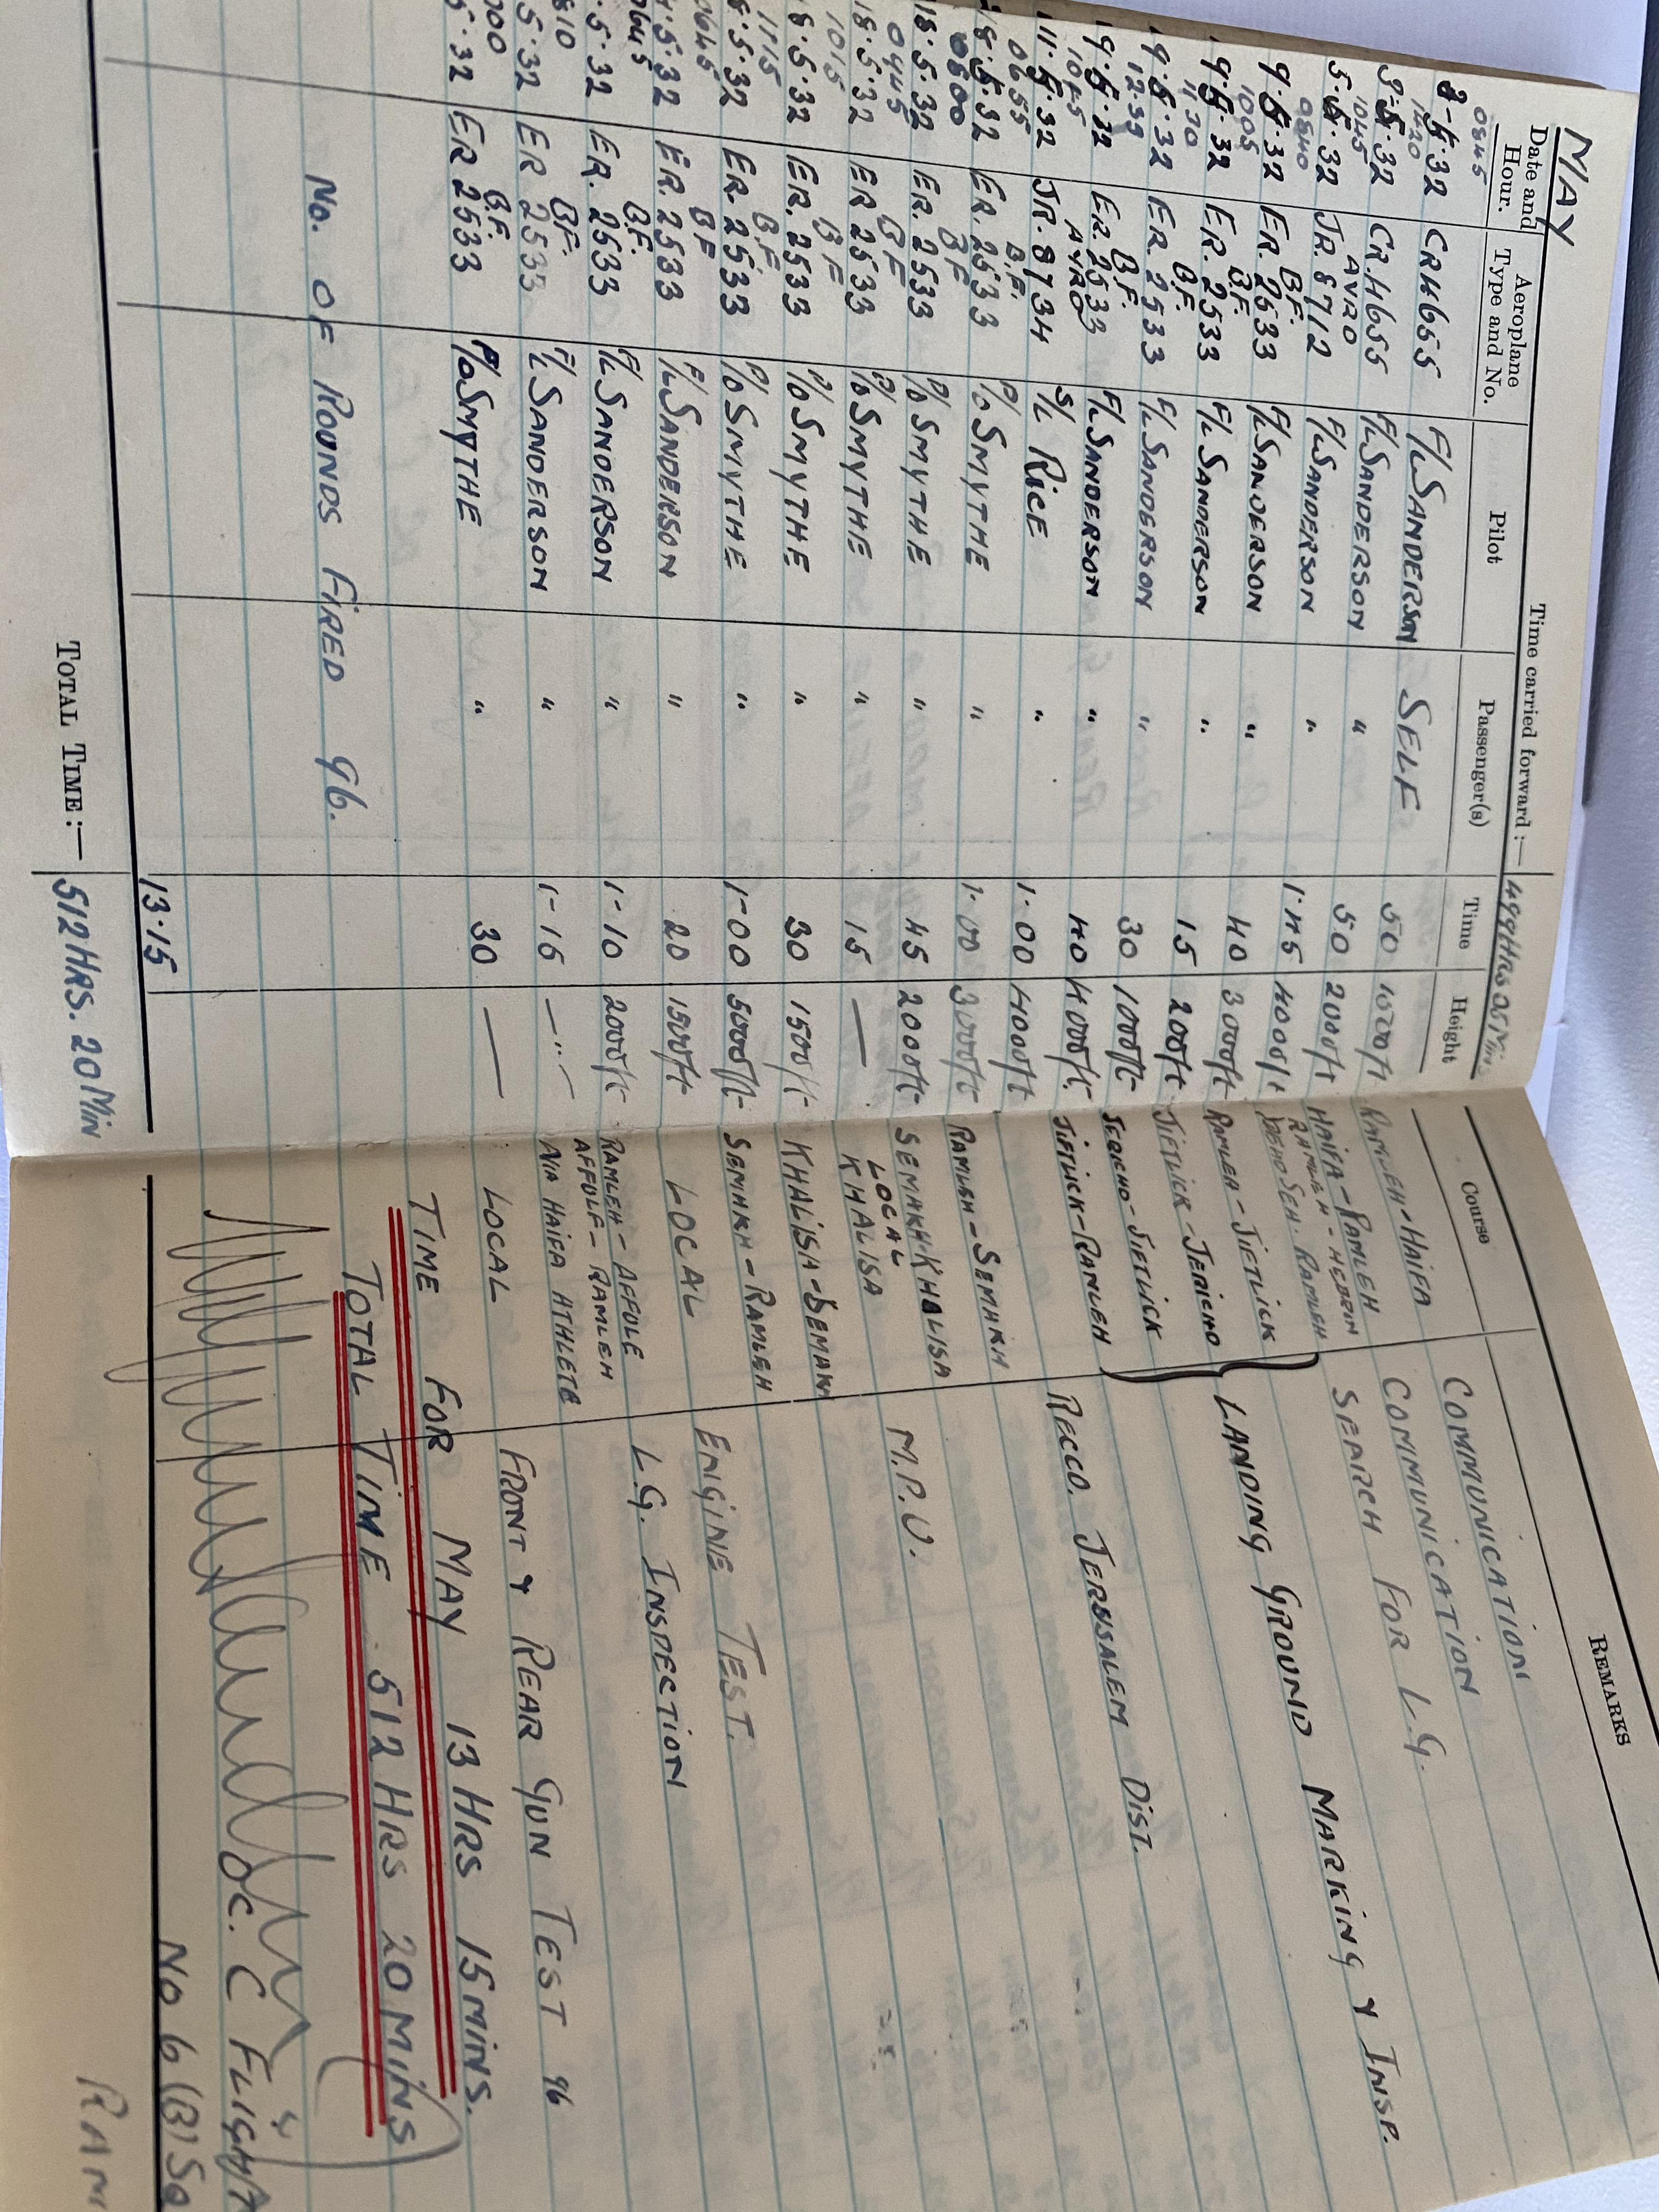 MAY
Time carried forward :— 499HRS 05Min
Date and Hour. Aeroplane Type and No. Pilot Passenger(s) Time Height Course REMARKS
0845
CR H655 F/L SANDERSON SELF 50 1500ft RAMLEH-HAIFA COMMUNICATION
1420
3-5-32 CR.H655 F/L SANDERSON " 50 2000ft HAIFA-RAMLEH COMMUNICATION
1045 AVRO RAMLEH-HEBRON
5.5.32 JR.8712 F/L SANDERSON " 1.45 4000ft RAMLEH SEARCH FOR L.G.
0840 B.F.
9.5.32 ER.2533 F/L SANDERSON " 40 3000ft RAMLEH-JIFTLICK
1005 B.F.
9.5.32 ER.2533 F/L SANDERSON " 15 200ft JIFTLICK-JERICHO LANDING GROUND MARKING & INSP.
1130 B.F.
9.5.32 ER.2533 F/L SANDERSON " 30 1000ft JERICHO-JIFTLICK
B.F.
9.5.32 ER.2533 F/L SANDERSON " 40 4000ft. JIFTLICK-RAMLEH
1045 AVRO
11.5.32 JR.8734 S/L RICE " 1.00 4000ft RECCO. JERUSALEM DIST.
0655 B.F.
18.5.32 ER.2533 P/O SMYTHE " 1.00 3000ft RAMLEH-SEMAKH
0800 BF
18.5.32 ER.2533 P/O SMYTHE " 45 2000ft SEMAKH-KHALISA M.P.U.
0945 BF LOCAL
18.5.32 ER 2533 P/O SMYTHE " 15 — KHALISA
1015 BF
18.5.32 ER.2533 P/O SMYTHE " 30 1500ft KHALISA-SEMAKH
1115 B.F
5.32 ER.2533 P/O SMYTHE " 1-00 5000ft SEMAKH-RAMLEH
0645 BF
5.32 ER.2533 F/L SANDERSON " 20 1500ft LOCAL ENGINE TEST.
0645 B.F. RAMLEH-AFFULE
5.32 ER.2533 F/L SANDERSON " 1-10 2000ft AFFULE-RAMLEH L.G. INSPECTION
810 BF.
5.32 ER 2533 F/L SANDERSON " 1-15 —"— VIA HAIFA ATHLETE
000 B.F.
5.32 ER 2533 P/O SMYTHE " 30 — LOCAL FRONT & REAR GUN TEST 96
TIME FOR MAY 13 HRS 15 MINS.
NO. OF ROUNDS FIRED 96.
TOTAL TIME 512 HRS 20 MINS
13.15
OC. C FLIGHT
TOTAL TIME:— 512 HRS. 20 MIN
NO 6 (B) SQ
RAM